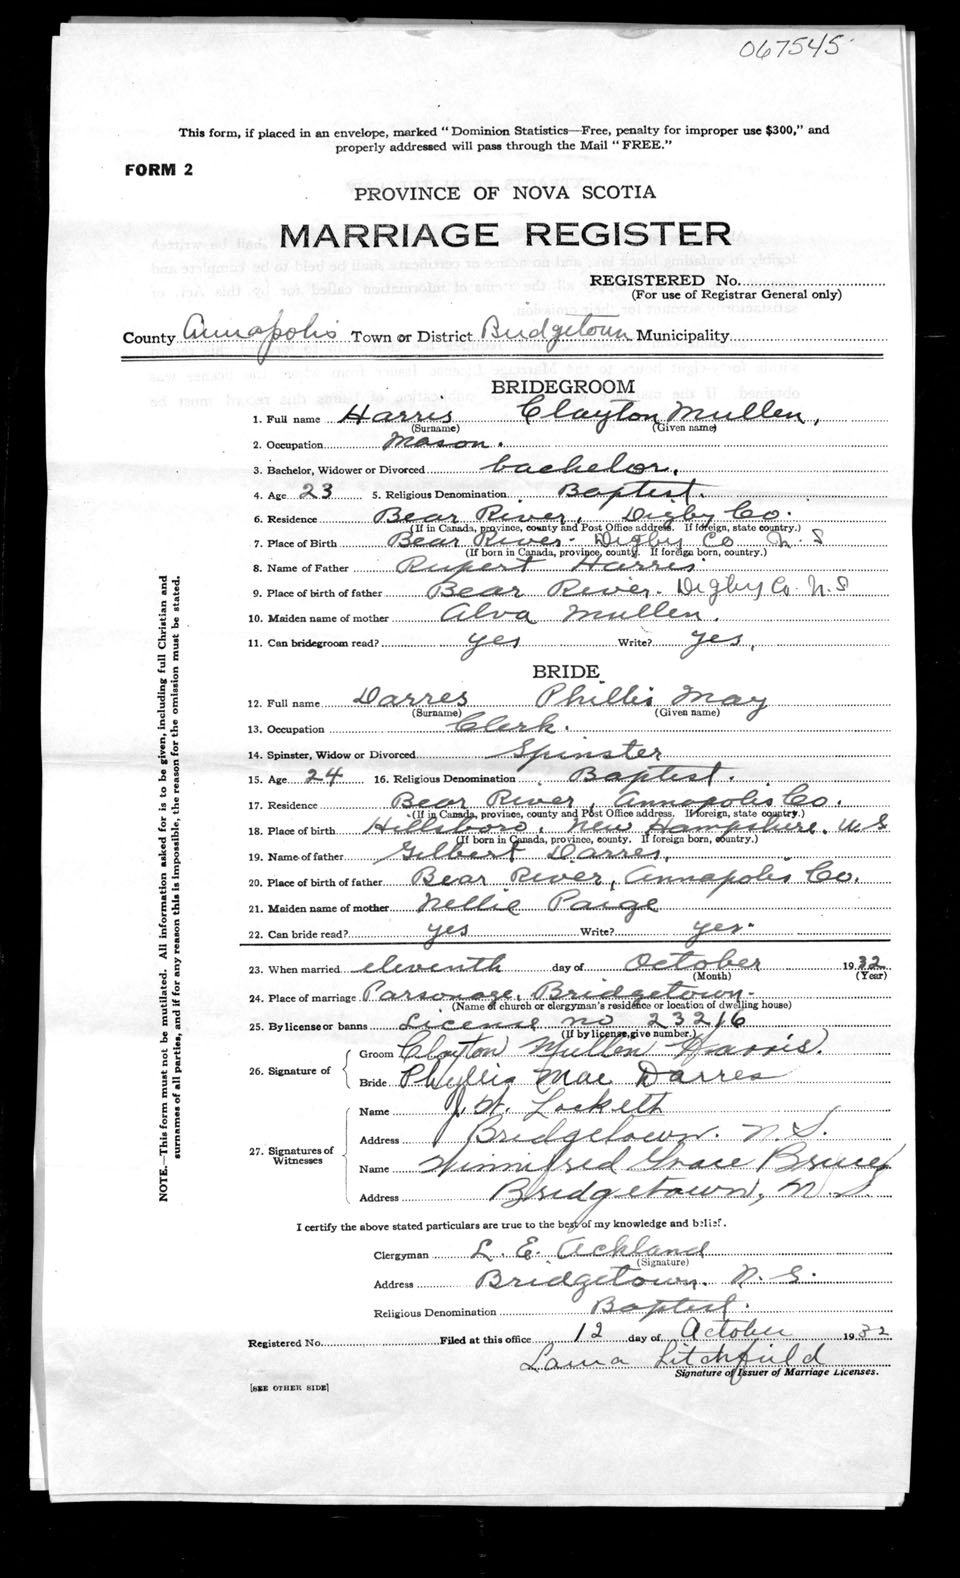 067545
This form, if placed in an envelope, marked "Dominion Statistics—Free, penalty for improper use $300," and
properly addressed will pass through the Mail "FREE."
FORM 2
PROVINCE OF NOVA SCOTIA
MARRIAGE REGISTER
REGISTERED No.
(For use of Registrar General only)
County Annapolis Town or District Bridgetown Municipality
BRIDEGROOM
1. Full name Harris Clayton Mullen,
(Surname) (Given name)
2. Occupation Mason.
3. Bachelor, Widower or Divorced bachelor,
4. Age 23 5. Religious Denomination Baptist.
6. Residence Bear River, Digby Co.
(If in Canada, province, county and Post Office address. If foreign, state country.)
7. Place of Birth Bear River - Digby Co N S
(If born in Canada, province, county. If foreign born, country.)
8. Name of Father Rupert Harris
9. Place of birth of father Bear River. Digby Co. N.S
10. Maiden name of mother Alva Mullen.
11. Can bridegroom read? yes Write? yes,
BRIDE
12. Full name Darres Phillis May
(Surname) (Given name)
13. Occupation Clerk.
14. Spinster, Widow or Divorced Spinster
15. Age 24 16. Religious Denomination Baptist.
17. Residence Bear River, Annapolis Co.
(If in Canada, province, county and Post Office address. If foreign, state country.)
18. Place of birth Hillsboro, New Hampshire, U S
(If born in Canada, province, county. If foreign born, country.)
19. Name of father Gilbert Darres,
20. Place of birth of father Bear River, Annapolis Co.
21. Maiden name of mother Nellie Paige
22. Can bride read? yes Write? yes.
23. When married eleventh day of October 1932
(Month) (Year)
24. Place of marriage Parsonage, Bridgetown.
(Name of church or clergyman's residence or location of dwelling house)
25. By license or banns License no 23216
(If by license, give number.)
26. Signature of
Groom Clayton Mullen Harris.
Bride Phyllis Mae Darres
27. Signatures of Witnesses
Name J. H. Lockett
Address Bridgetown. N.S.
Name Winnifred Grace Bruce
Address Bridgetown, N.S.
I certify the above stated particulars are true to the best of my knowledge and belief.
Clergyman L. E. Ackland
(Signature)
Address Bridgetown. N.S.
Religious Denomination Baptist.
Registered No. Filed at this office 12 day of October 1932
Laura Litchfield
Signature of Issuer of Marriage Licenses.
[SEE OTHER SIDE]
NOTE.—This form must not be mutilated. All information asked for is to be given, including full Christian and
surnames of all parties, and if for any reason this is impossible, the reason for the omission must be stated.